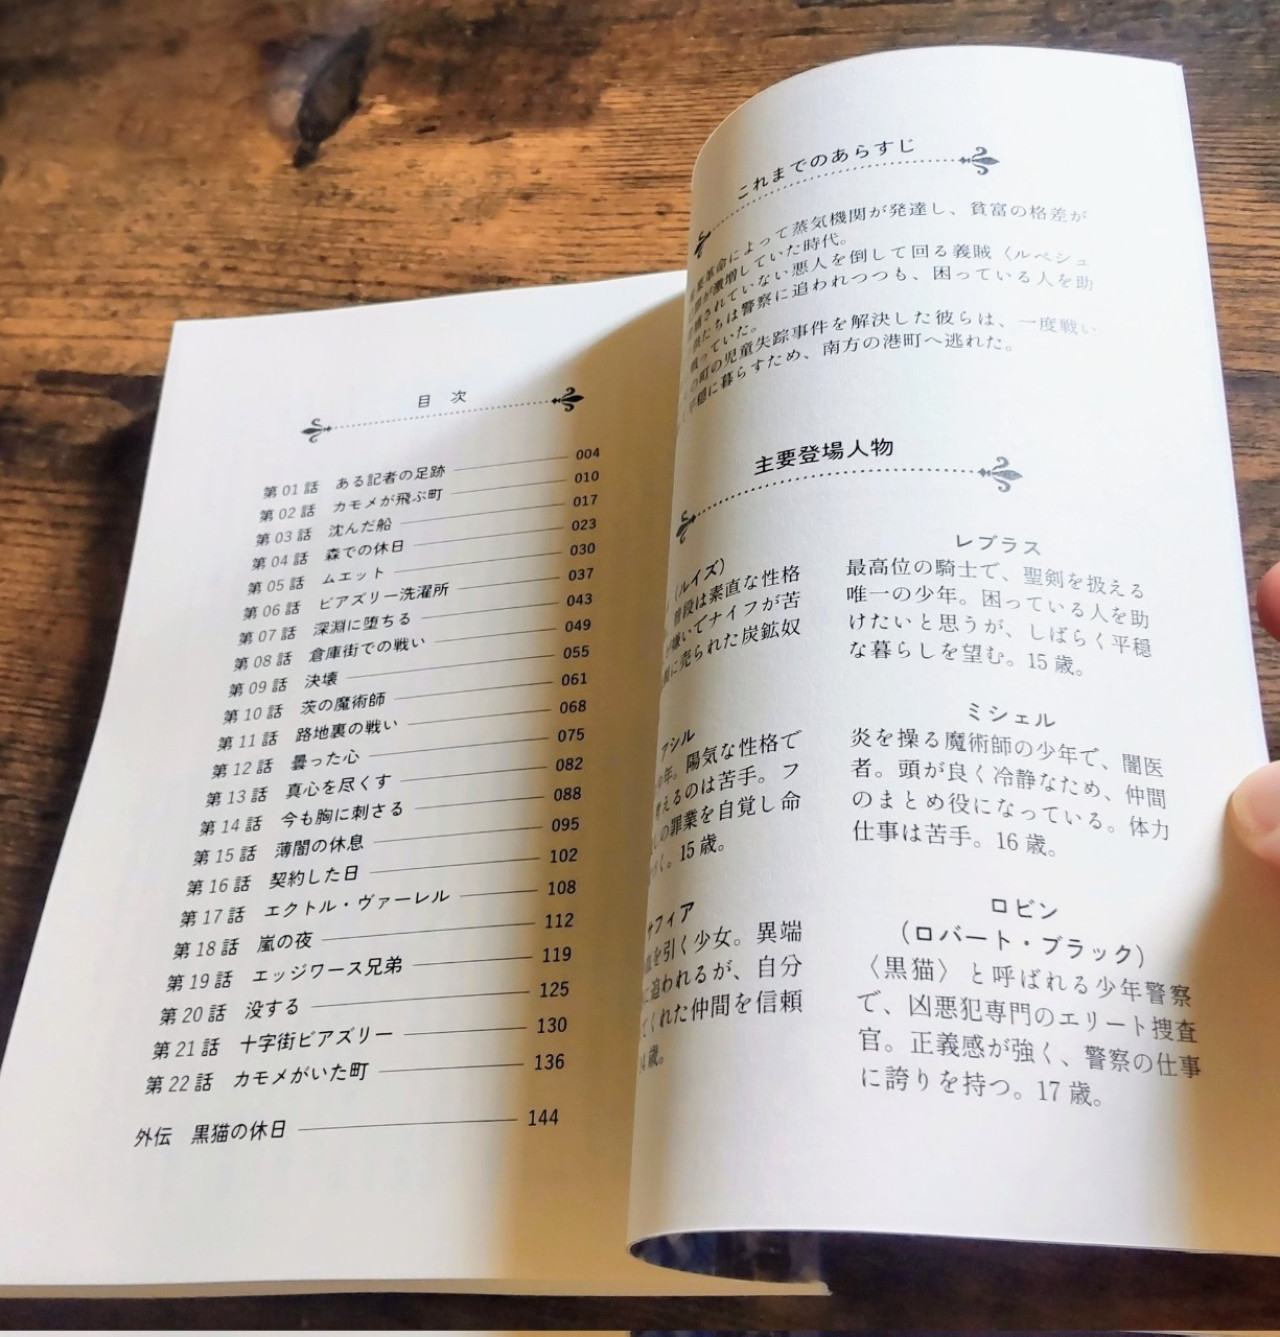 目次
第01話 ある記者の足跡 004
第02話 カモメが飛ぶ町 010
第03話 沈んだ船 017
第04話 森での休日 023
第05話 ムエット 030
第06話 ビアズリー洗濯所 037
第07話 深淵に堕ちる 043
第08話 倉庫街での戦い 049
第09話 決壊 055
第10話 茨の魔術師 061
第11話 路地裏の戦い 068
第12話 曇った心 075
第13話 真心を尽くす 082
第14話 今も胸に刺さる 088
第15話 薄闇の休息 095
第16話 契約した日 102
第17話 エクトル・ヴァーレル 108
第18話 嵐の夜 112
第19話 エッジワース兄弟 119
第20話 没する 125
第21話 十字街ビアズリー 130
第22話 カモメがいた町 136
外伝 黒猫の休日 144
これまでのあらすじ
革命によって蒸気機関が発達し、貧富の格差が
激増していた時代。
されていない悪人を倒して回る義賊〈ルペシュ
たちは警察に追われつつも、困っている人を助
っていた。
の町の児童失踪事件を解決した彼らは、一度戦い
平穏に暮らすため、南方の港町へ逃れた。
主要登場人物
(ルイズ)
普段は素直な性格
嫌いでナイフが苦
に売られた炭鉱奴
アシル
年。陽気な性格で
考えるのは苦手。フ
の罪業を自覚し命
く。15歳。
フィア
血を引く少女。異端
に追われるが、自分
てくれた仲間を信頼
歳。
レブラス
最高位の騎士で、聖剣を扱える
唯一の少年。困っている人を助
けたいと思うが、しばらく平穏
な暮らしを望む。15歳。
ミシェル
炎を操る魔術師の少年で、闇医
者。頭が良く冷静なため、仲間
のまとめ役になっている。体力
仕事は苦手。16歳。
ロビン
(ロバート・ブラック)
〈黒猫〉と呼ばれる少年警察
で、凶悪犯専門のエリート捜査
官。正義感が強く、警察の仕事
に誇りを持つ。17歳。